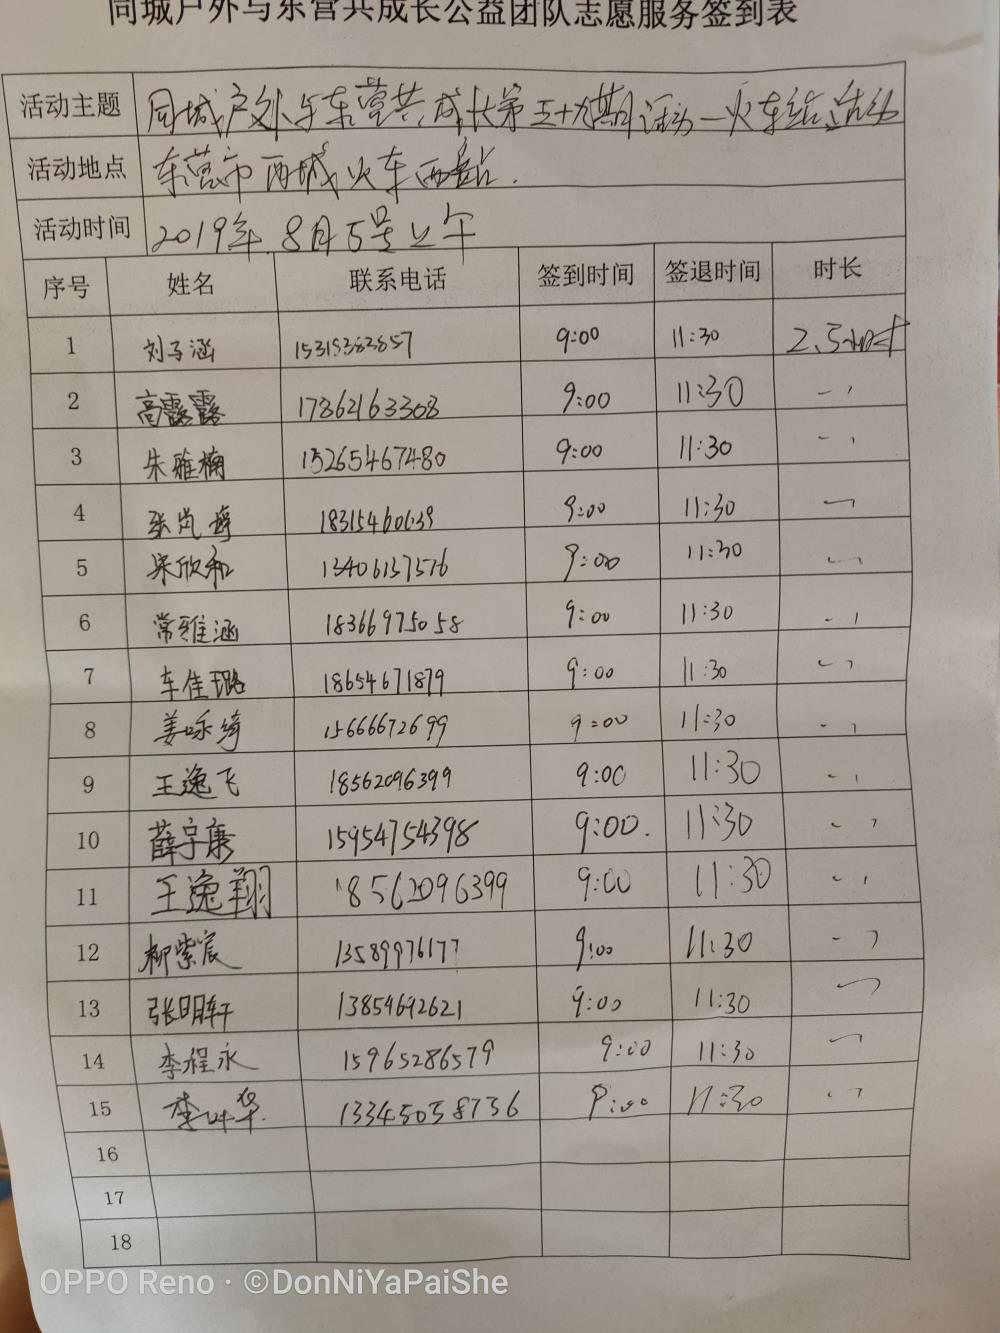 同城户外与东营共成长公益团队志愿服务签到表
活动主题 同城户外与东营共成长第五十九期活动—火车站活动
活动地点 东营市西城火车西站.
活动时间 2019年.8月5号上午
序号 姓名 联系电话 签到时间 签退时间 时长
1 刘子涵 15315363857 9:00 11:30 2.5小时
2 高露露 17862163308 9:00 11:30 〃
3 朱雅楠 15265467480 9:00 11:30 〃
4 张岚 18315460639 9:00 11:30 〃
5 宋欣和 13406137516 9:00 11:30 〃
6 常雅涵 18366975058 9:00 11:30 〃
7 车佳璐 18654671879 9:00 11:30 〃
8 姜咏绮 15666672699 9:00 11:30 〃
9 王逸飞 18562096399 9:00 11:30 〃
10 薛宇康 15954754398 9:00. 11:30 〃
11 王逸翔 18562096399 9:00 11:30 〃
12 柳紫宸 13589976177 9:00 11:30 〃
13 张明轩 13854692621 9:00 11:30 〃
14 李程永 15965286579 9:00 11:30 〃
15 李叶华 13345058736 9:00 11:30 〃
16
17
18
OPPO Reno · ©DonNiYaPaiShe